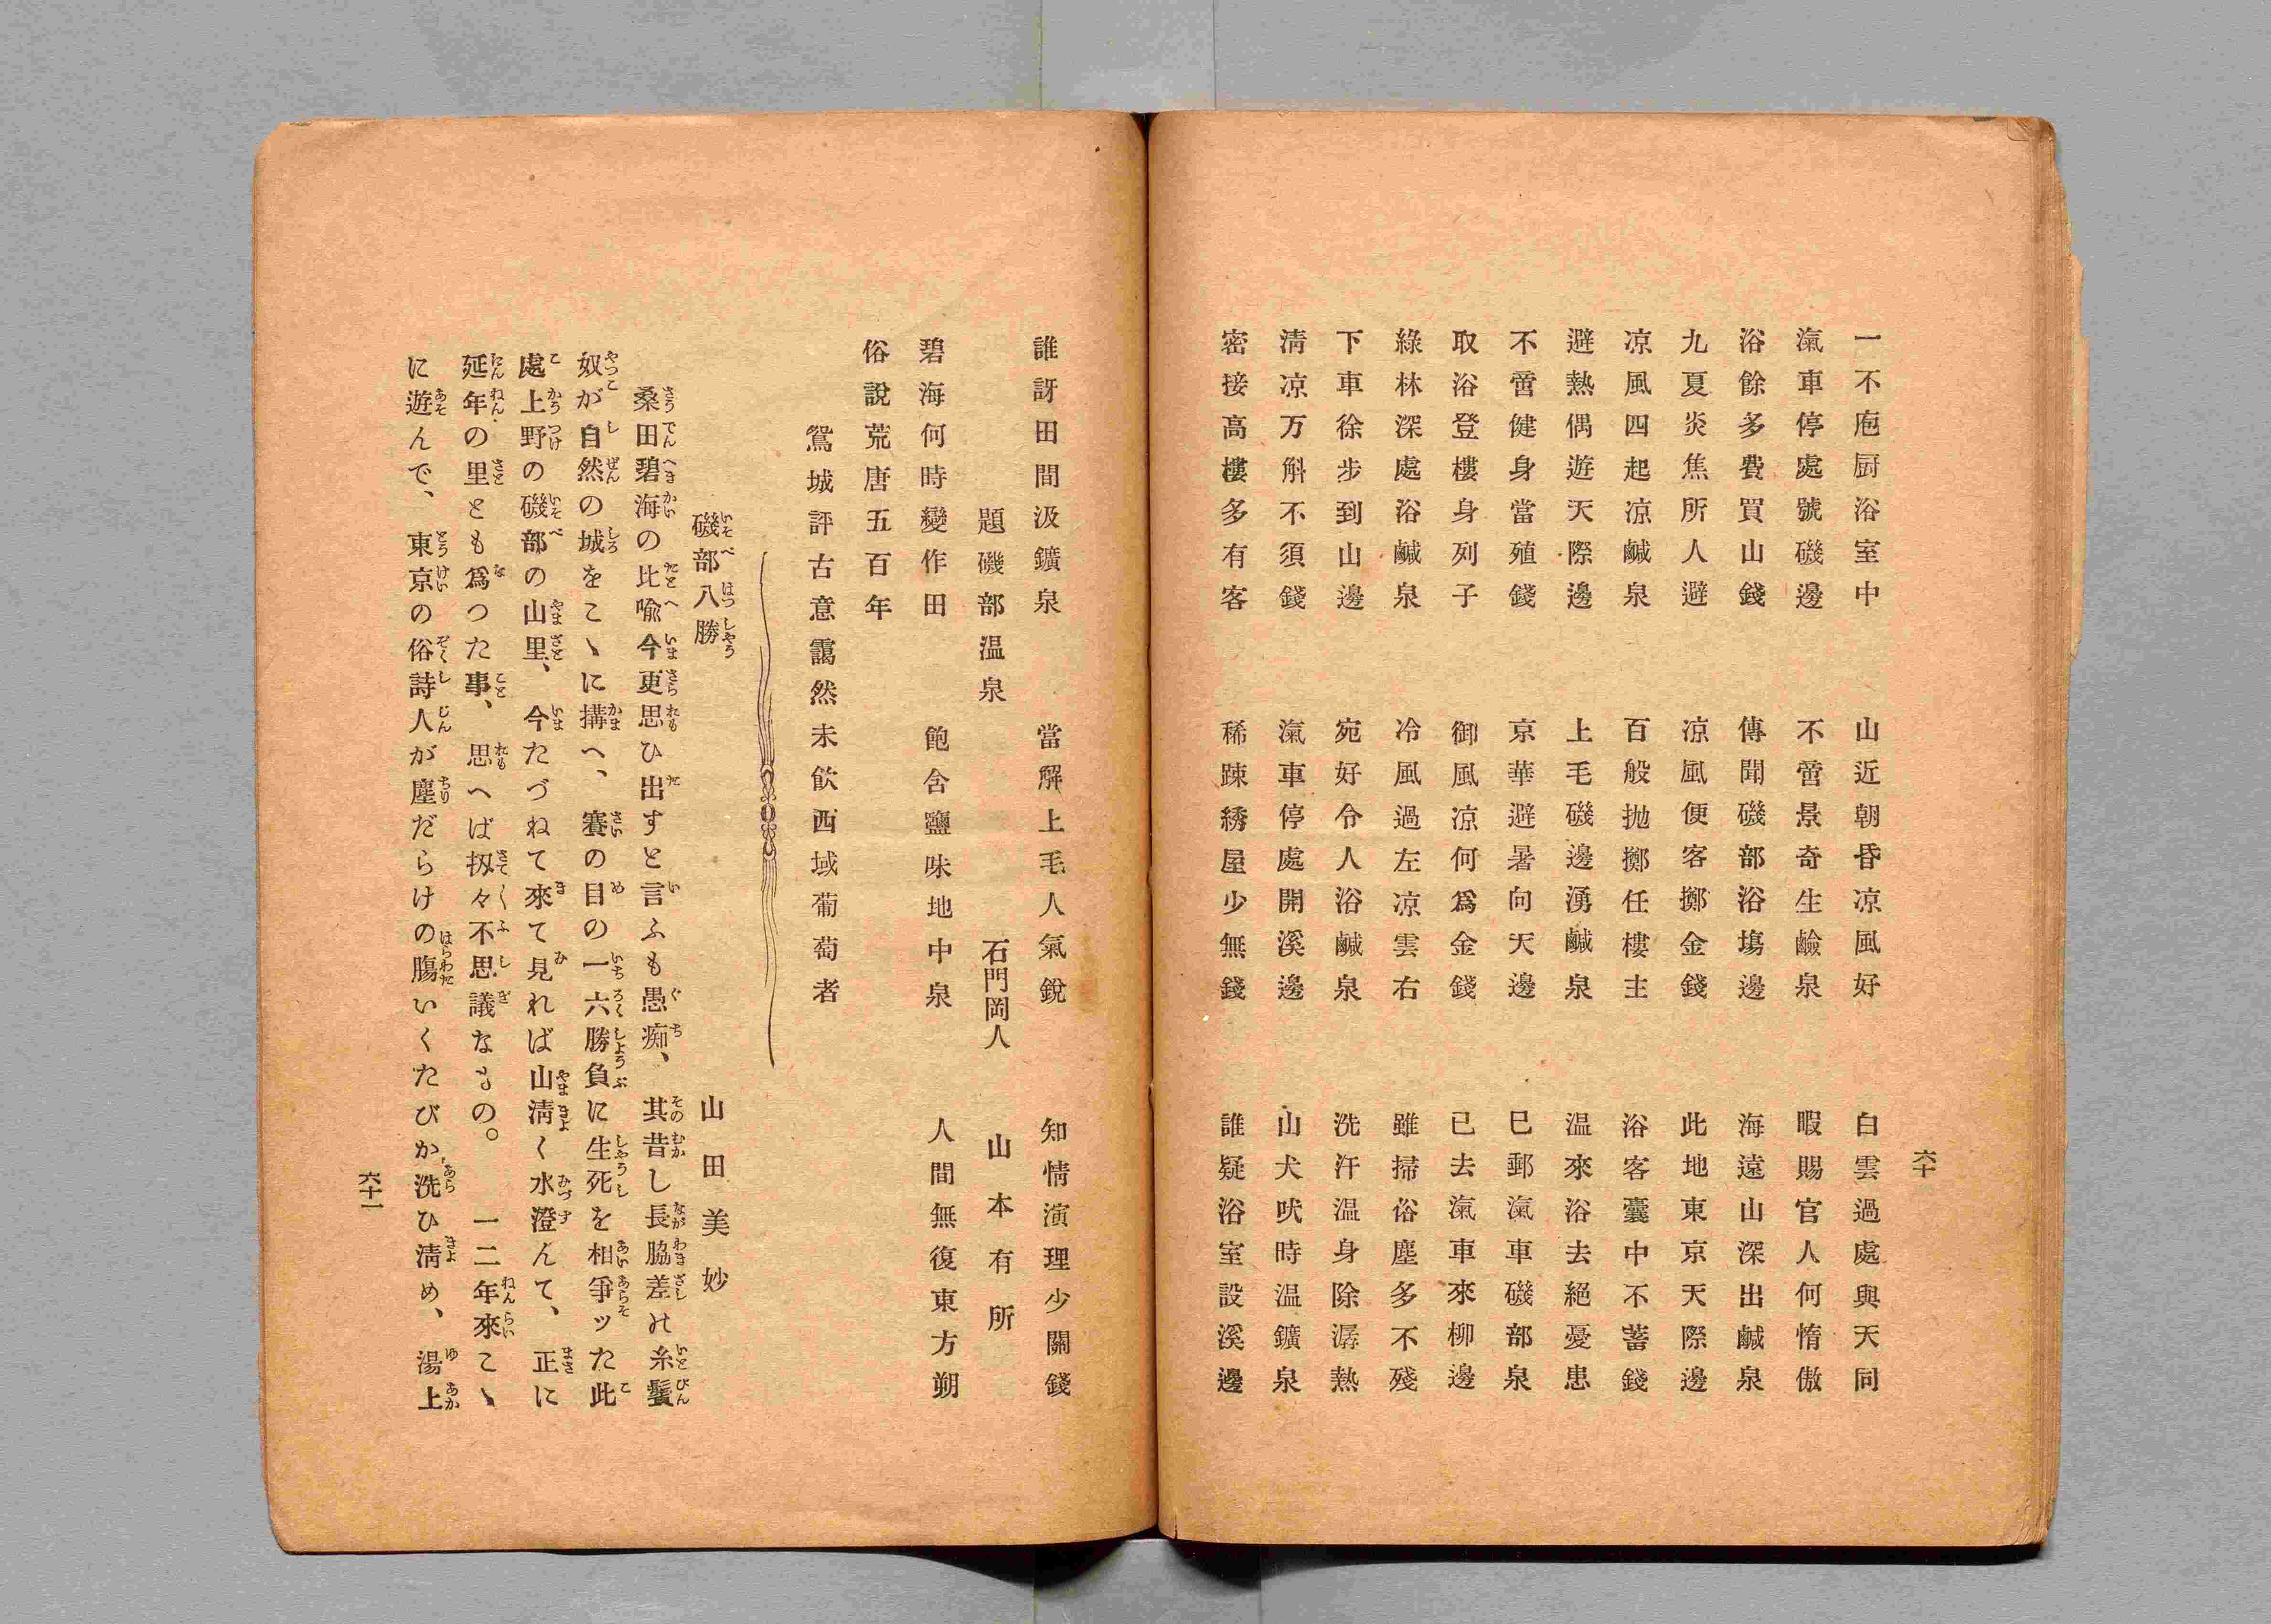 六十
一不庖厨浴室中　山近朝昏凉風好　白雲過處與天同
滊車停處號磯邊　不啻景奇生鹼泉　暇賜官人何惰傲
浴餘多費買山錢　傳聞磯部浴塲邊　海遠山深出鹹泉
九夏炎焦所人避　凉風便客擲金錢　此地東京天際邊
凉風四起凉鹹泉　百般抛擲任樓主　浴客囊中不蓄錢
避熱偶遊天際邊　上毛磯邊湧鹹泉　温來浴去絕憂患
不啻健身當殖錢　京華避暑向天邊　巳郵滊車磯部泉
取浴登樓身列子　御風凉何爲金錢　已去滊車來柳邊
綠林深處浴鹹泉　冷風過左凉雲右　雖掃俗塵多不殘
下車徐步到山邊　宛好令人浴鹹泉　洗汗温身除潺熱
淸凉万斛不須錢　滊車停處開溪邊　山犬吠時温鑛泉
密接高樓多有客　稀踈綉屋少無錢　誰疑浴室設溪邊
誰訝田間汲鑛泉　當解上毛人氣銳　知情演理少關錢
題磯部温泉　石門岡人　山本有所
碧海何時變作田　飽含鹽味地中泉　人間無復東方朔
俗說荒唐五百年
鴛城評古意靄然未飮西域葡萄者
磯部八勝　山田美妙
桑田碧海の比喩今更思ひ出すと言ふも愚痴、其昔し長脇差の糸鬢
奴が自然の城をこゝに搆へ、賽の目の一六勝負に生死を相爭ッた此
處上野の磯部の山里、今たづねて來て見れば山淸く水澄んて、正に
延年の里とも爲つた事、思へば扨々不思議なもの。一二年來こゝ
に遊んで、東京の俗詩人が塵だらけの膓いくたびか洗ひ淸め、湯上
六十一